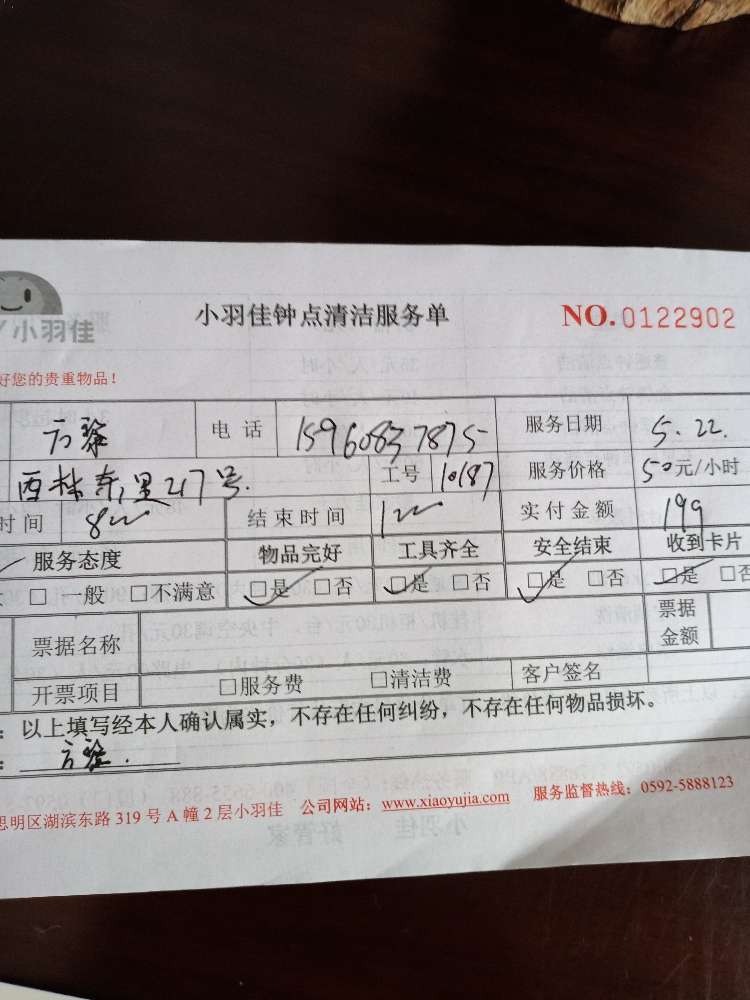 小羽佳
小羽佳钟点清洁服务单
NO.0122902
好您的贵重物品！
电 话 15960837875 服务日期 5.22.
西林东里217号. 工号 10187 服务价格 50元/小时
时间 800 结束时间 1200 实付金额 199
服务态度 物品完好 工具齐全 安全结束 收到卡片
□ 一般 □不满意 □是 □否 □是 □否 □是 □否 □是 □否
票据名称 票据金额
开票项目 □服务费 □清洁费 客户签名
：以上填写经本人确认属实，不存在任何纠纷，不存在任何物品损坏。
思明区湖滨东路 319 号 A 幢 2 层小羽佳 公司网站：www.xiaoyujia.com 服务监督热线：0592-5888123